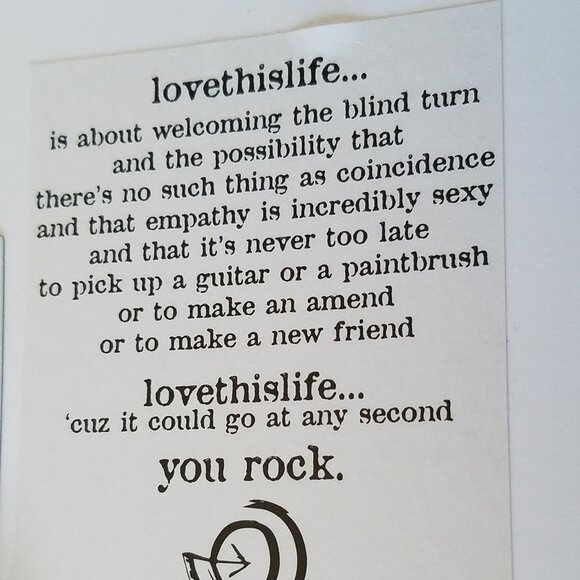 lovethislife...
is about welcoming the blind turn
and the possibility that
there's no such thing as coincidence
and that empathy is incredibly sexy
and that it's never too late
to pick up a guitar or a paintbrush
or to make an amend
or to make a new friend
lovethislife...
‘cuz it could go at any second
you rock.